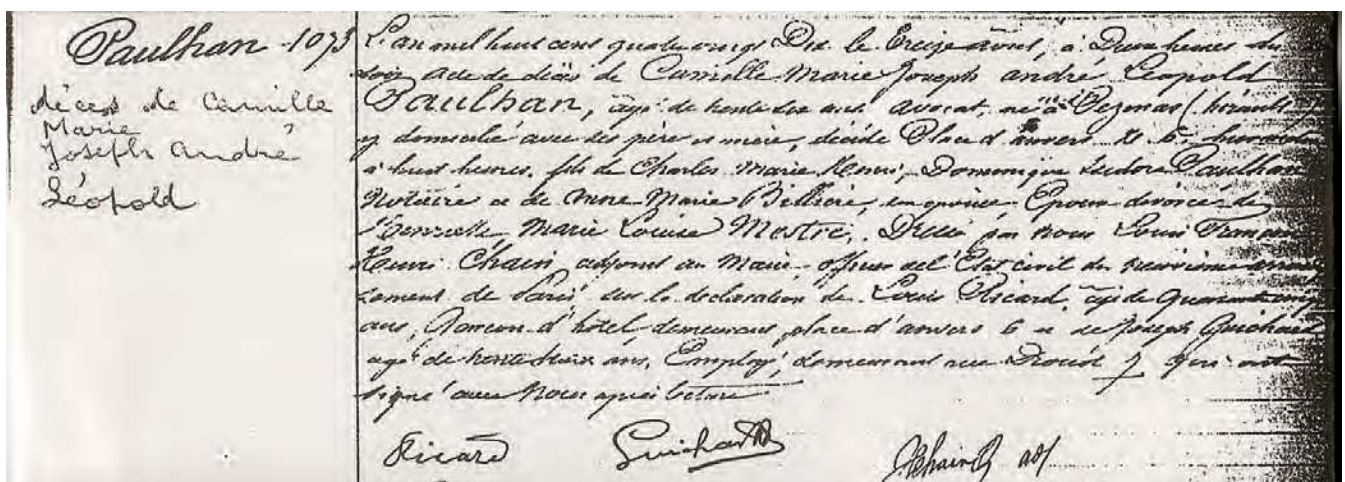 Paulhan 1073
décès de Camille
Marie
Joseph André
Léopold
L'an mil huit cent quatre vingt Dix le Treize avril, à Deux heures du
soir acte de décès de Camille Marie Joseph André Léopold
Paulhan, âgé de trente ans avocat, né à Pezenas (hérault)
y domicilié avec ses père et mère, décédé Place d'anvers 6
à huit heures, fils de Charles Marie Henri, Dominique Isidore Paulhan
Notaire et de Marie Billière, Epoux divorcé de
Henriette Marie Louise Mestre. Dressé par nous Louis François
Henri Chain adjoint au Maire officier de l'Etat civil du neuvième
sement de Paris sur la déclaration de Louis Ricard, âgé de Quarante cinq
ans, Garcon d'hôtel demeurant place d'anvers 6 et de Joseph Guichard
agé de trente deux ans, Employé, demeurant rue Drouot 7 qui ont
signé avec Nous après lecture
Ricard Guichard HChain adj